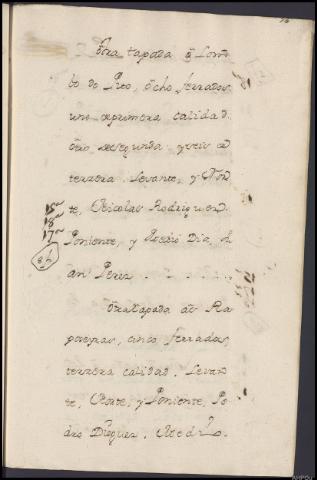 Otra tapada q Lom
bo do Pico, ocho ferrados,
uno de primera calidad.
otro de segunda y seis de
terzera. Levante, y Nor
te, Nicolas Rodriguez.
Poniente, y Medio Dia,
an Perez . . . . .
15a
18a
17a
Otra tapada de Ra
poeyras, cinco ferrados,
terzera calidad. Levan
te, Norte, y Poniente, Pe
dro Dieguez. Medio